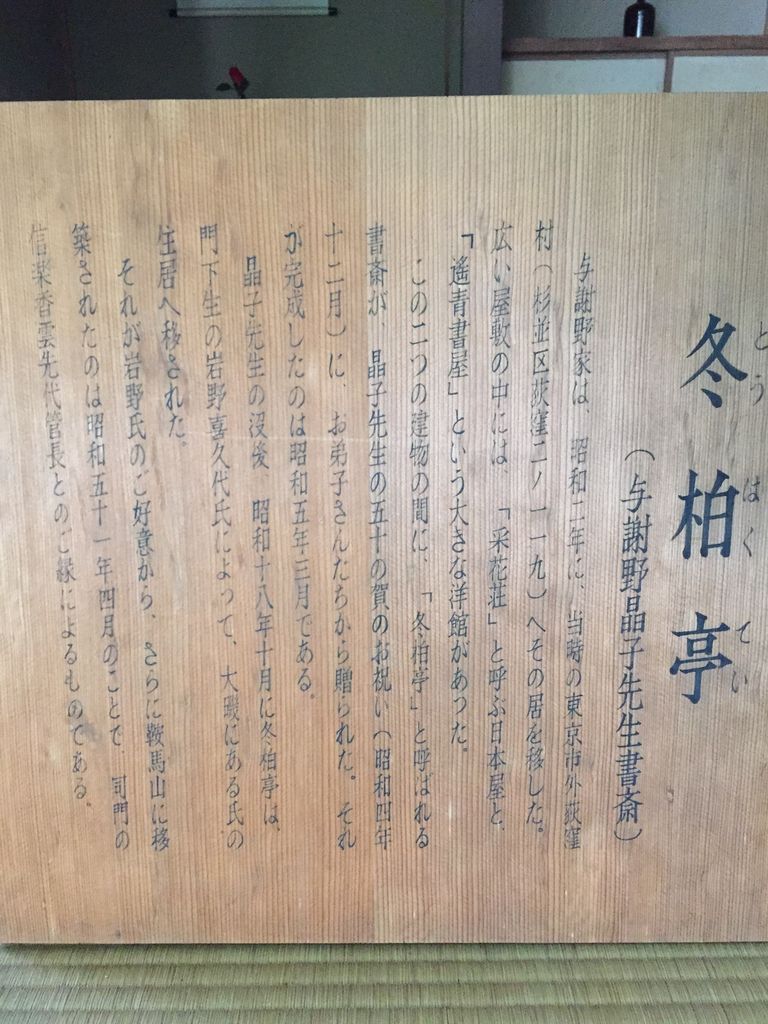 冬柏亭
とうはくてい
(与謝野晶子先生書斎)
与謝野家は、昭和二年に、当時の東京市外荻窪
村(杉並区荻窪二ノ一一九)へその居を移した。
広い屋敷の中には、「采花荘」と呼ぶ日本屋と、
「遙青書屋」という大きな洋館があった。
この二つの建物の間に、「冬柏亭」と呼ばれる
書斎が、晶子先生の五十の賀のお祝い(昭和四年
十二月)に、お弟子さんたちから贈られた。それ
が完成したのは昭和五年三月である。
晶子先生の没後、昭和十八年十月に冬柏亭は、
門下生の岩野喜久代氏によって、大磯にある氏の
住居へ移された。
それが岩野氏のご好意から、さらに鞍馬山に移
築されたのは昭和五十一年四月のことで、同門の
信楽香雲先代管長とのご縁によるものである。